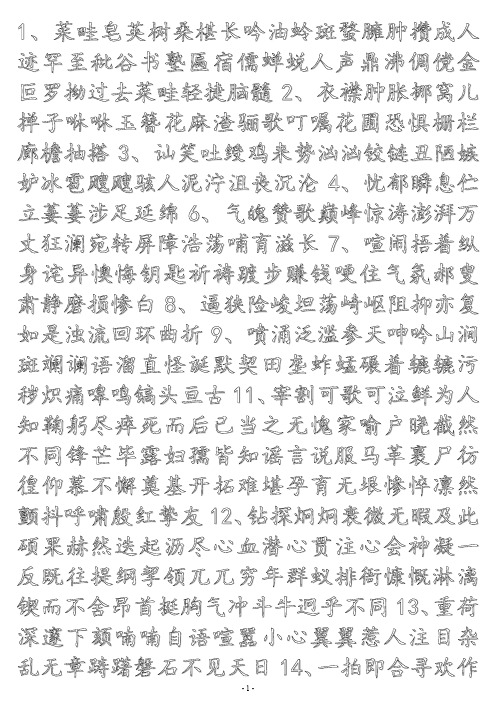 1、菜畦皂荚树桑椹长吟油蛉斑蝥臃肿攒成人
迹罕至秕谷书塾匾宿儒蝉蜕人声鼎沸倜傥金
叵罗拗过去菜畦轻捷脑髓 2、衣襟肿胀挪窝儿
掸子咻咻玉簪花麻渣骊歌叮嘱花圃恐惧栅栏
廊檐抽搭 3、讪笑吐绶鸡来势汹汹铰链丑陋嫉
妒冰雹飕飕骇人泥泞沮丧沉沦 4、忧郁瞬息伫
立萋萋涉足延绵 6、气魄赞歌巅峰惊涛澎湃万
丈狂澜宛转屏障浩荡哺育滋长 7、喧闹捂着纵
身诧异懊悔钥匙祈祷踱步赚钱哽住气氛郝叟
肃静磨损惨白 8、逼狭险峻坦荡崎岖阻抑亦复
如是浊流回环曲折 9、喷涌泛滥参天呻吟山涧
斑斓谰语溜直怪诞默契田垄蚱蜢碾着辘辘污
秽炽痛嗥鸣镐头亘古 11、宰割可歌可泣鲜为人
知鞠躬尽瘁死而后已当之无愧家喻户晓截然
不同锋芒毕露妇孺皆知谣言说服马革裹尸彷
徨仰慕不懈奠基开拓难堪孕育无垠惨悴凛然
颤抖呼啸殷红挚友 12、钻探炯炯衰微无暇及此
硕果赫然迭起沥尽心血潜心贯注心会神凝一
反既往提纲挈领兀兀穷年群蚁排衙慷慨淋漓
锲而不舍昂首挺胸气冲斗牛迥乎不同 13、重荷
深邃下颏喃喃自语喧嚣小心翼翼惹人注目杂
乱无章踌躇磐石不见天日 14、一拍即合寻欢作
- 1 -